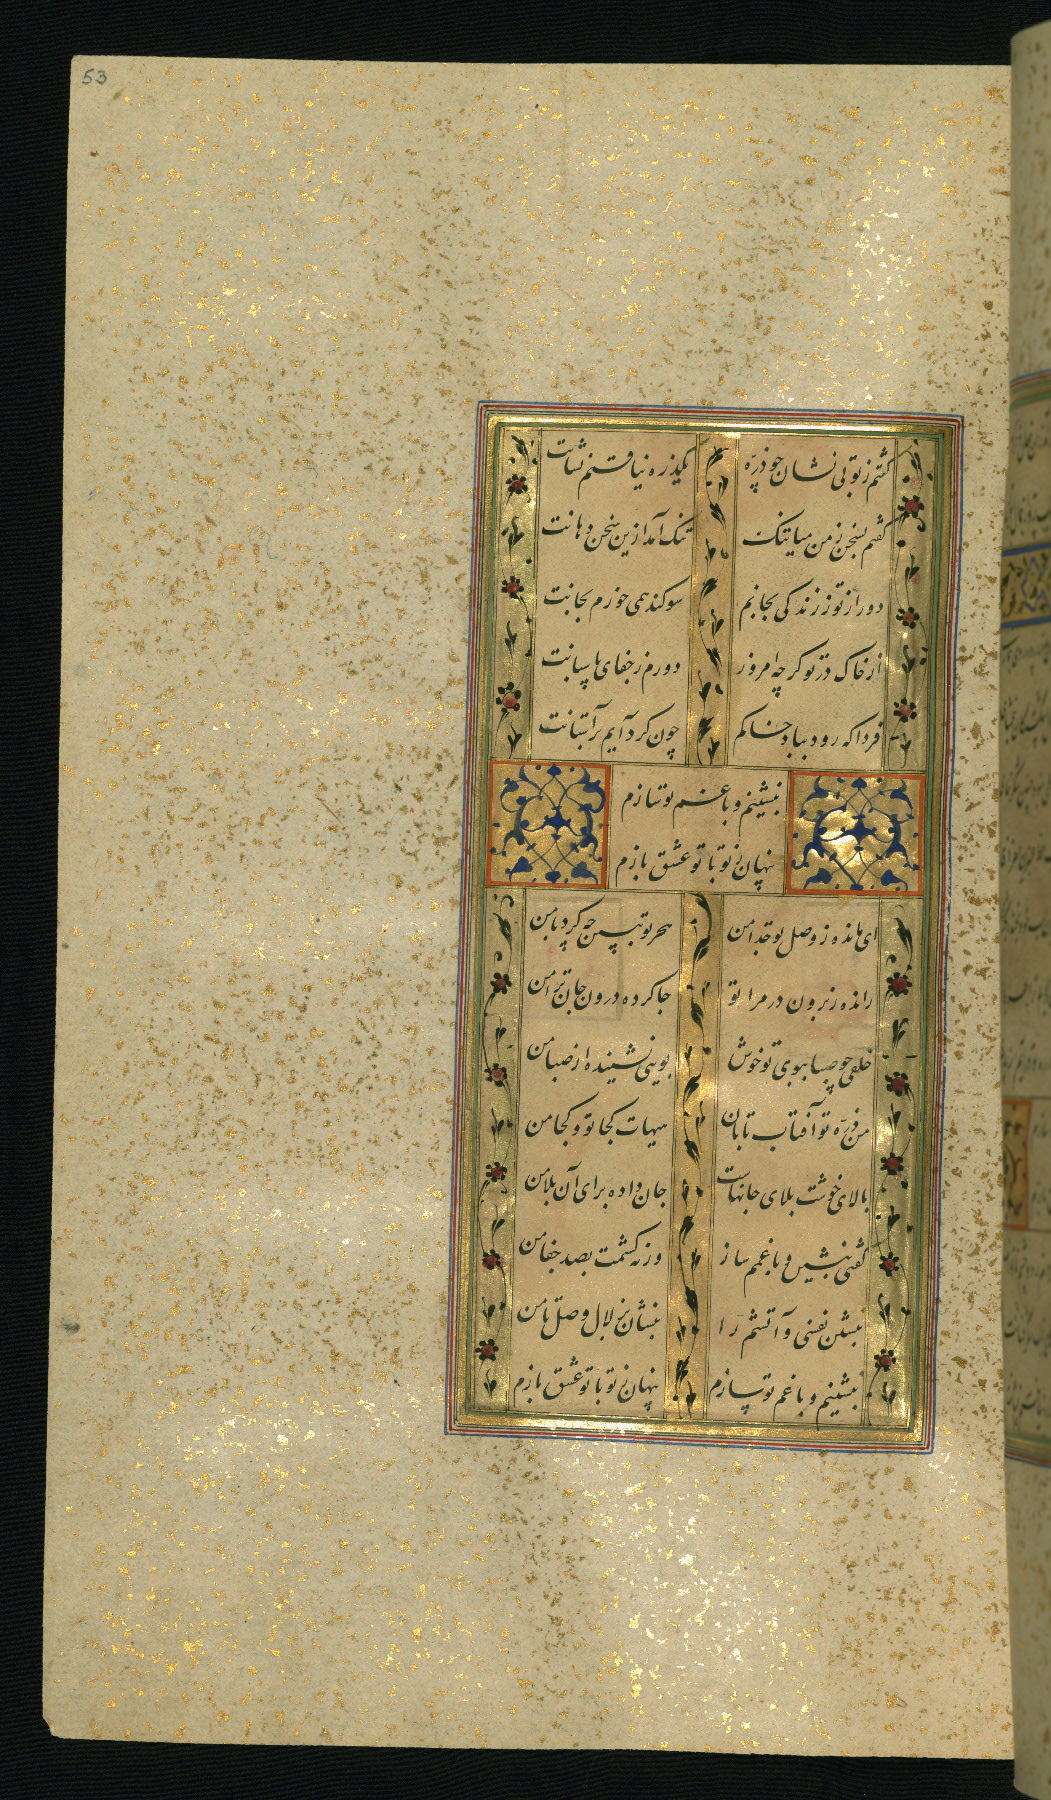 53
گشتم ز تو بی نشان چو ذرّه یکذره نیافتم نشانت
گفتم سخن ز من میانتنک تنک آمد ازین سخن دهانت
دور از تو ز زندکی بجانم سوکند همی خورم بجانت
از خاک در تو کر چه امروز دورم ز جفای پاسبانت
فردا که رود بباد خاکم چون کرد آیم بر آستانت
بنشینم و با غم تو سازم
پنهان ز تو با تو عشق بازم
ای مانده ز وصل تو جدا من هجر تو ببین چه کرد با من
رانده ز برون در مرا تو جا کرده درون جان ترا من
خلقی چو صبا ببوی تو خوش بویی نشنیده از صبا من
من ذرّه تو آفتاب تابان هیهات کجا تو و کجا من
بالای خوشت بلای جانهاست جان داده برای آن بلا من
کفتی بنشین و با غمم ساز ورنه کشمت بصد جفا من
بنشین نفسی و آتشم را بنشان بزلال وصل تا من
بنشینم و با غم تو سازم پنهان ز تو با تو عشق بازم